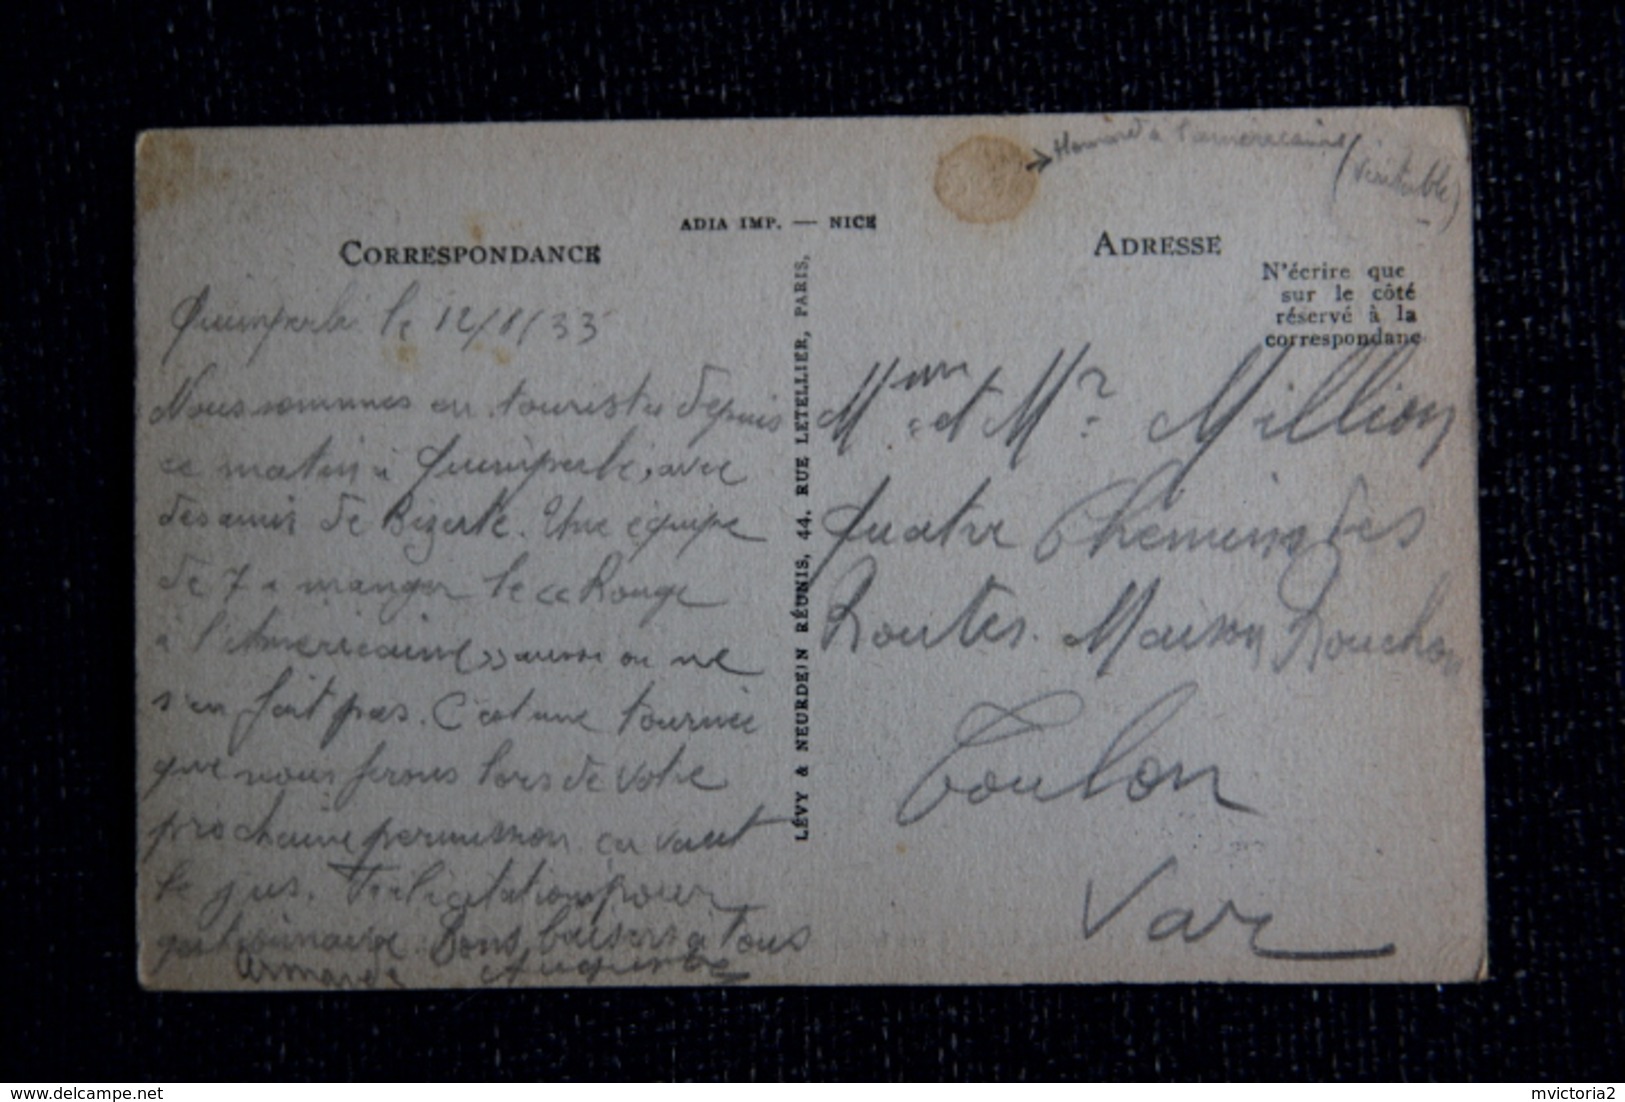 → Homard à l'américaine
(véritable)
ADIA IMP. — NICE
CORRESPONDANCE
ADRESSE
N'écrire que
sur le côté
réservé à la
correspondane
LÉVY & NEURDEIN RÉUNIS, 44, RUE LETELLIER, PARIS,
Quimperlé le 12/8/33
Nous sommes en touristes depuis
ce matin à Quimperlé, avec
des amis de Bizerte. Une équipe
de 7 à manger le « Rouge
à l'Américaine » aussi on ne
s'en fait pas. C'est une tournée
que nous ferons lors de votre
prochaine permission ça vaut
le jus. Félicitations pour
Bons baisers à tous
Armande Auguste
Mme et Mr Million
Quatre Chemins des
Routes. Maison Rouchon
Toulon
Var
delcampe.net
mvictoria2